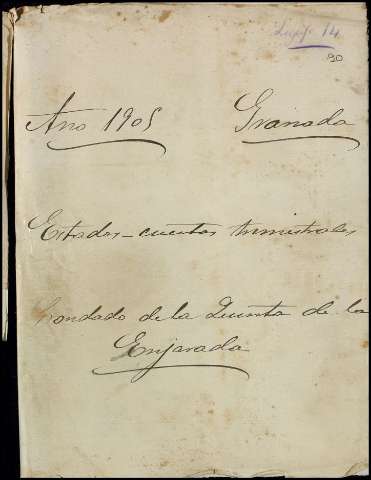 Legajo 14
90
Año 1905 Granada
Estados-cuentas trimestrales
Condado de la Quinta de la
Enjarada